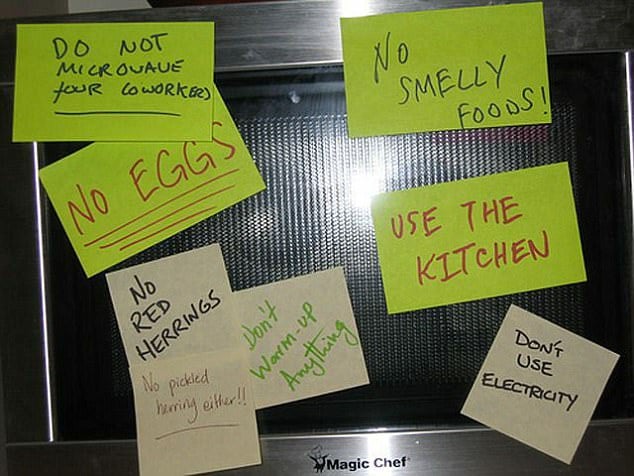 DO NOT
MICROWAVE
YOUR COWORKERS
NO
SMELLY
FOODS!
NO EGGS
USE THE
KITCHEN
NO
RED
HERRINGS
Don't
Warm-up
Anything
No pickled
herring either!!
DON'T
USE
ELECTRICITY
Magic Chef